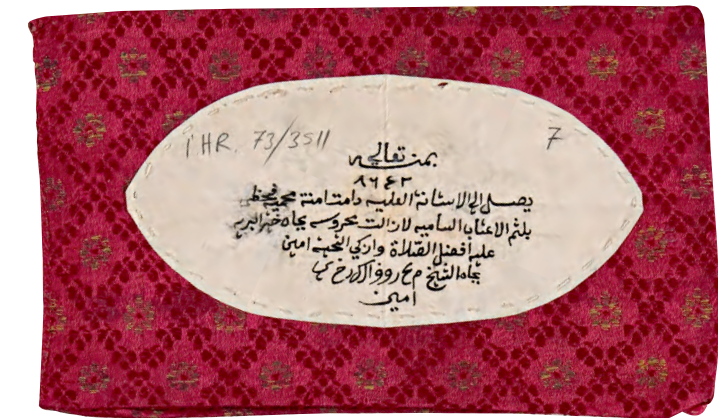 İHR. 73/3511
7
بمنه تعالى
٨٦٤٢
يصل إلى الاستانة العلية دامت امنة محمية وتحظى
بلثم الاعتاب السامية لازالت محروسه بجاه خير البريه
عليه أفضل الصلاة وازكى التحية امين
بجاه الشيخ معروف الكرخي
امين